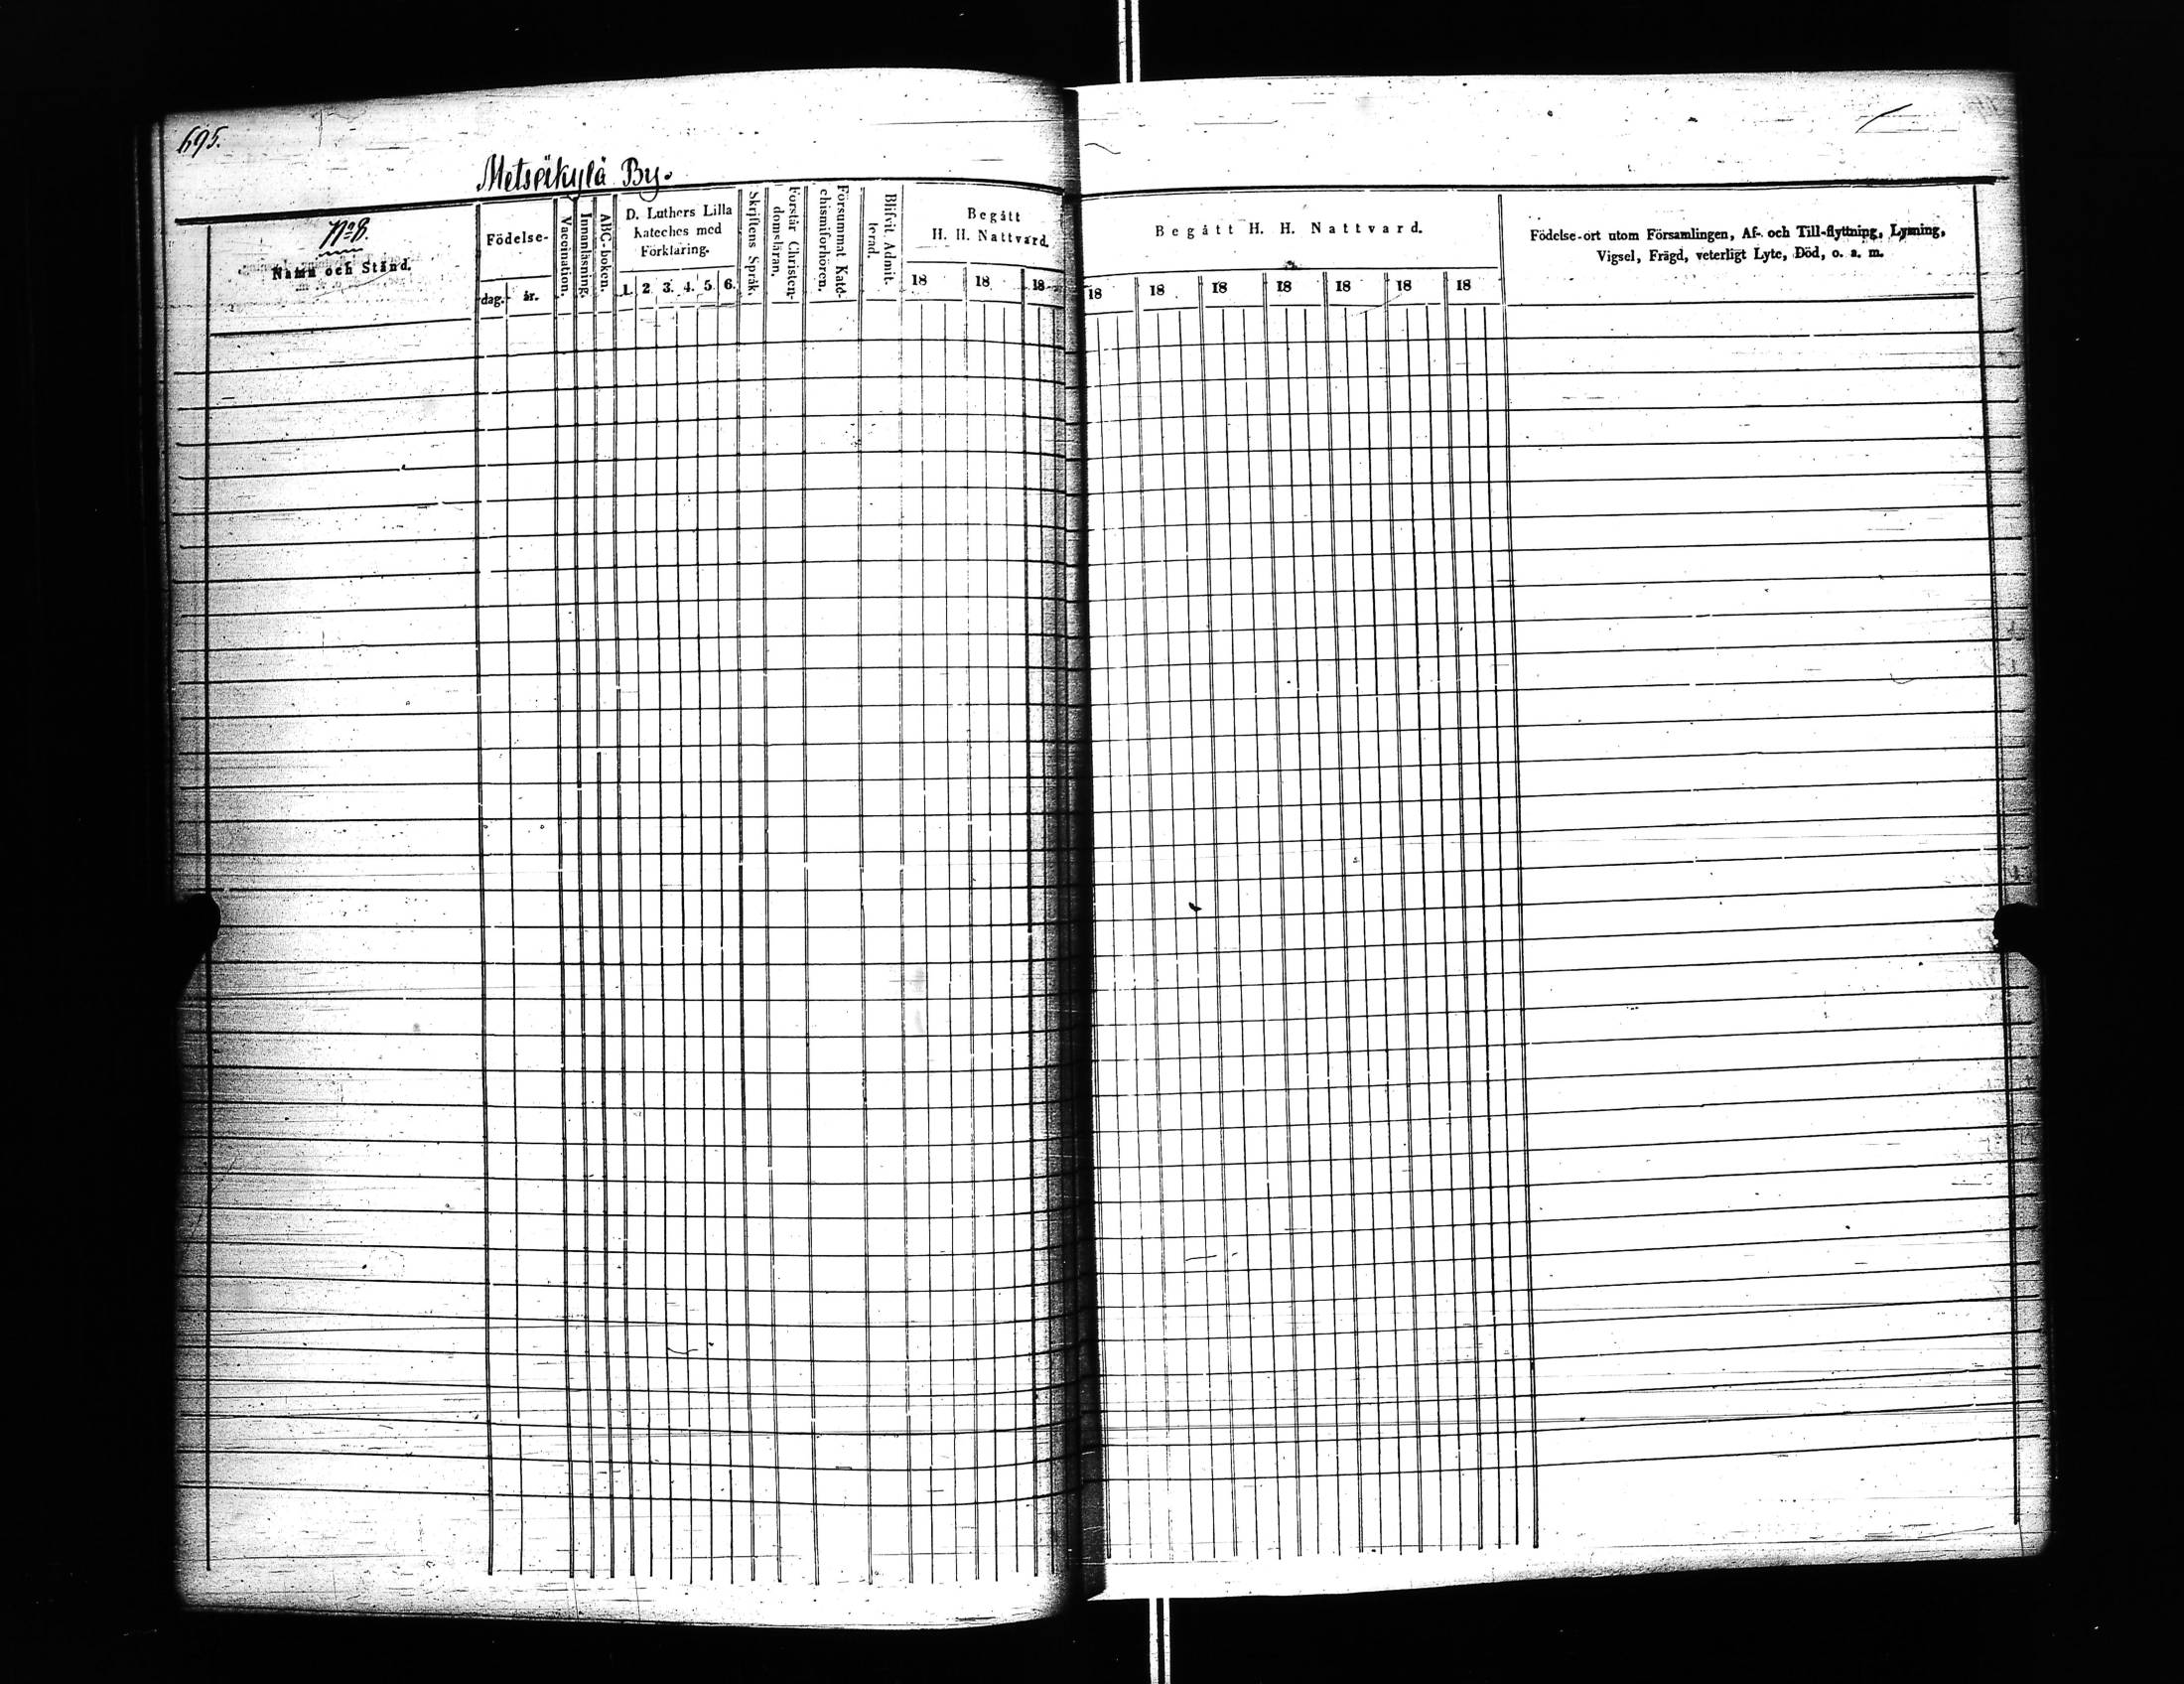 695.
Metsäkylä By.
No 8.
Namn och Stånd.
Födelse-
dag. år.
Vaccination.
Innanläsning.
ABC-boken.
D. Luthers Lilla
Kateches med
Förklaring.
1. 2. 3. 4. 5. 6.
Skriftens Språk.
Förstår Christen-
domsläran.
Försummat Kate-
chismiförhören.
Blifvit Admit-
terad.
Begått
H. H. Nattvard.
18 18 18
Begått H. H. Nattvard.
18 18 18 18 18 18 18
Födelse-ort utom Församlingen, Af- och Till-flyttning, Lysning,
Vigsel, Frägd, veterligt Lyte, Död, o. a. m.